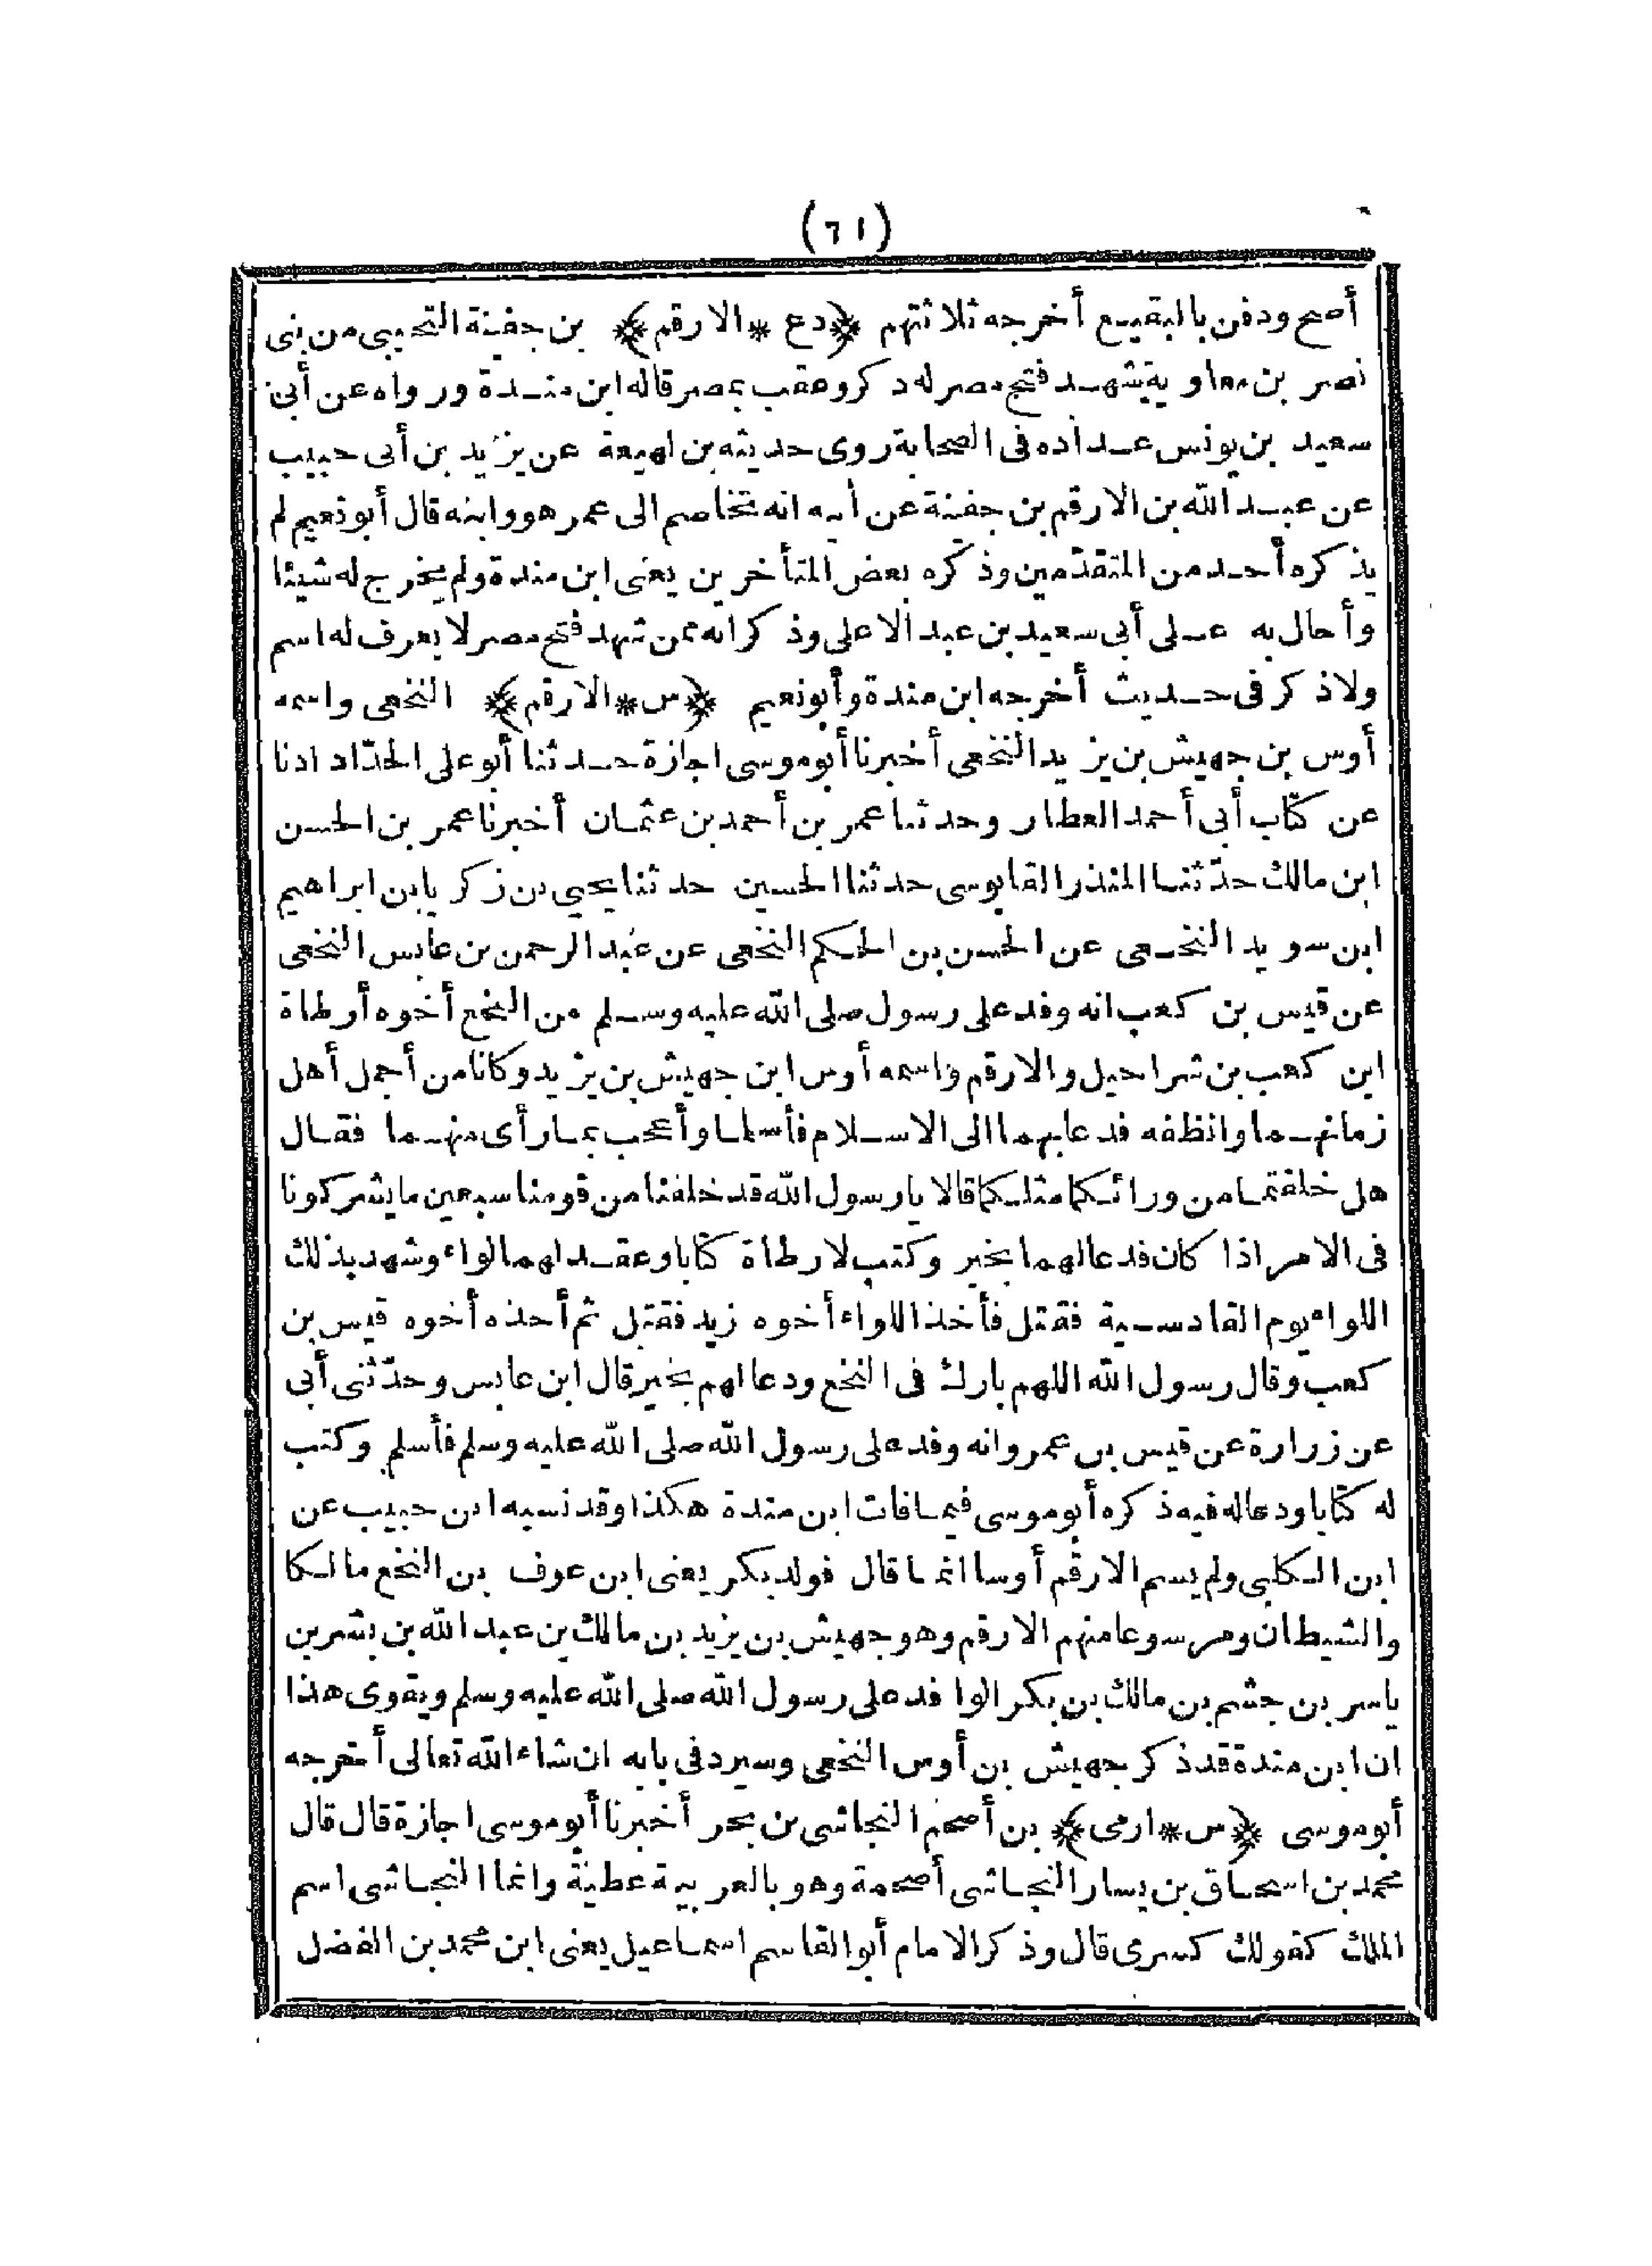 (٦١)
أصح ودفن بالبقيع أخرجه ثلاثتهم ﴿دع * الارقم﴾ بن جفينة التجيبى من بنى
نصر بن معاوية شهد فتح مصر له ذكر وعقب بمصر قاله ابن مندة ورواه عن أبى
سعيد بن يونس عداده فى الصحابة روى حديثه بن لهيعة عن يزيد بن أبى حبيب
عن عبد الله بن الارقم بن جفينة عن أبيه انه تخاصم الى عمر هو وابنه قال أبو نعيم لم
يذكره أحد من المتقدّمين وذكره بعض المتأخرين يعنى ابن مندة ولم يخرج له شيئا
وأحال به على أبى سعيد بن عبد الاعلى وذكر انه ممن شهد فتح مصر لا يعرف له اسم
ولا ذكر فى حديث أخرجه ابن مندة وأبو نعيم ﴿س * الارقم﴾ النخعى واسمه
أوس بن جهيش بن يزيد النخعى أخبرنا أبو موسى اجازة حدثنا أبو على الحدّاد اذنا
عن كتاب أبى أحمد العطار وحدثنا عمر بن أحمد بن عثمان أخبرنا عمر بن الحسن
ابن مالك حدّثنا المنذر القابوسى حدثنا الحسين حدثنا يحيى بن زكريا بن ابراهيم
ابن سويد النخعى عن الحسن بن الحكم النخعى عن عبد الرحمن بن عابس النخعى
عن قيس بن كعب انه وفد على رسول صلى الله عليه وسلم من النخع أخوه أرطاة
ابن كعب بن شراحيل والارقم واسمه أوس ابن جهيش بن يزيد وكانا من أجمل أهل
زمانهما وانظفه فدعا بهما الى الاسلام فأسلما وأعجب بما رأى منهما فقال
هل خلفتما من ورائكما مثلكما قالا يا رسول الله قد خلفنا من قومنا سبعين ما يشركونا
فى الامر اذا كان فدعا لهما بخير وكتب لارطاة كتابا وعقد لهما لواء وشهد بذلك
اللواء يوم القادسية فقتل فأخذ اللواء أخوه زيد فقتل ثم أخذه أخوه قيس بن
كعب وقال رسول الله اللهم بارك فى النخع ودعا لهم بخير قال ابن عابس وحدّثنى أبى
عن زرارة عن قيس بن عمرو انه وفد على رسول الله صلى الله عليه وسلم فأسلم وكتب
له كتابا ودعا له فيه ذكره أبو موسى فيما فات ابن مندة هكذا وقد نسبه ابن حبيب عن
ابن الكلبى ولم يسم الارقم أوسا انما قال فولد بكر يعنى ابن عوف بن النخع مالكا
والشيطان ومرسوعا منهم الارقم وهو جهيش بن يزيد بن مالك بن عبد الله بن بشر بن
ياسر بن جشم بن مالك بن بكر الوافد على رسول الله صلى الله عليه وسلم ويقوى هذا
ان ابن مندة قد ذكر جهيش بن أوس النخعى وسيرد فى بابه ان شاء الله تعالى أخرجه
أبو موسى ﴿س * ارمى﴾ بن أصحم النجاشى بن بحر أخبرنا أبو موسى اجازة قال قال
محمد بن اسحاق بن يسار النجاشى أصحمة وهو بالعربية عطية وانما النجاشى اسم
الملك كقولك كسرى قال وذكر الامام أبو القاسم اسماعيل يعنى ابن محمد بن الفضل